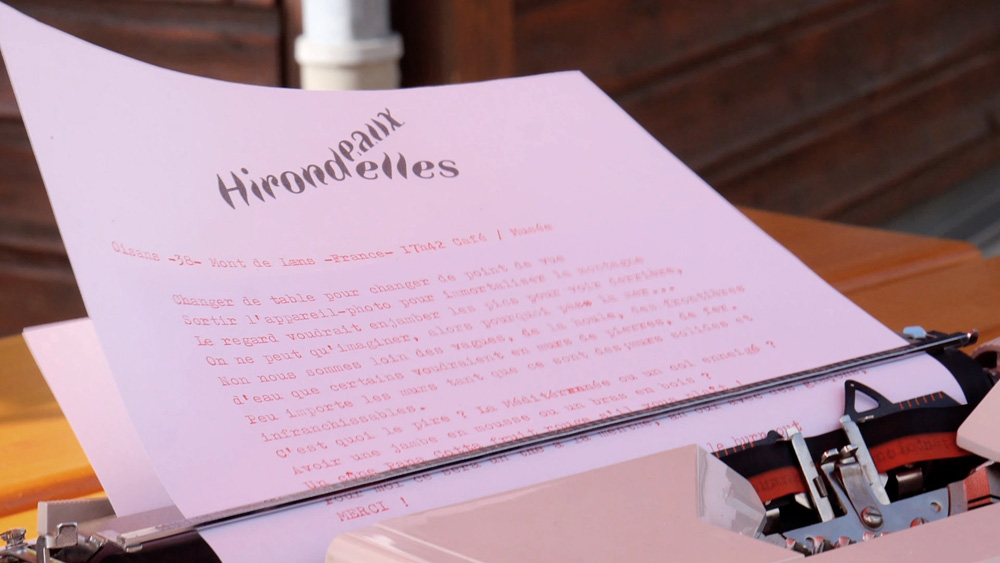 Hirondeaux
elles
Oisans -38- Mont de Lans -France- 17h42 Café / Musée
Changer de table pour changer de point de vue
Sortir l'appareil-photo pour immortaliser la montagne
Le regard voudrait enjamber les pics pour voir derrière,
On ne peut qu'imaginer, alors pourquoi pas la mer...
Non nous sommes loin des vagues, de la houle, des frontières
d'eau que certains voudraient en murs de pierres, de fer.
Peu importe les murs tant que ce sont des murs solides et
infranchissables.
C'est quoi le pire ? La Méditerrannée ou un col enneigé ?
Avoir une jambe en mousse ou un bras en bois ?
Un
MERCI !